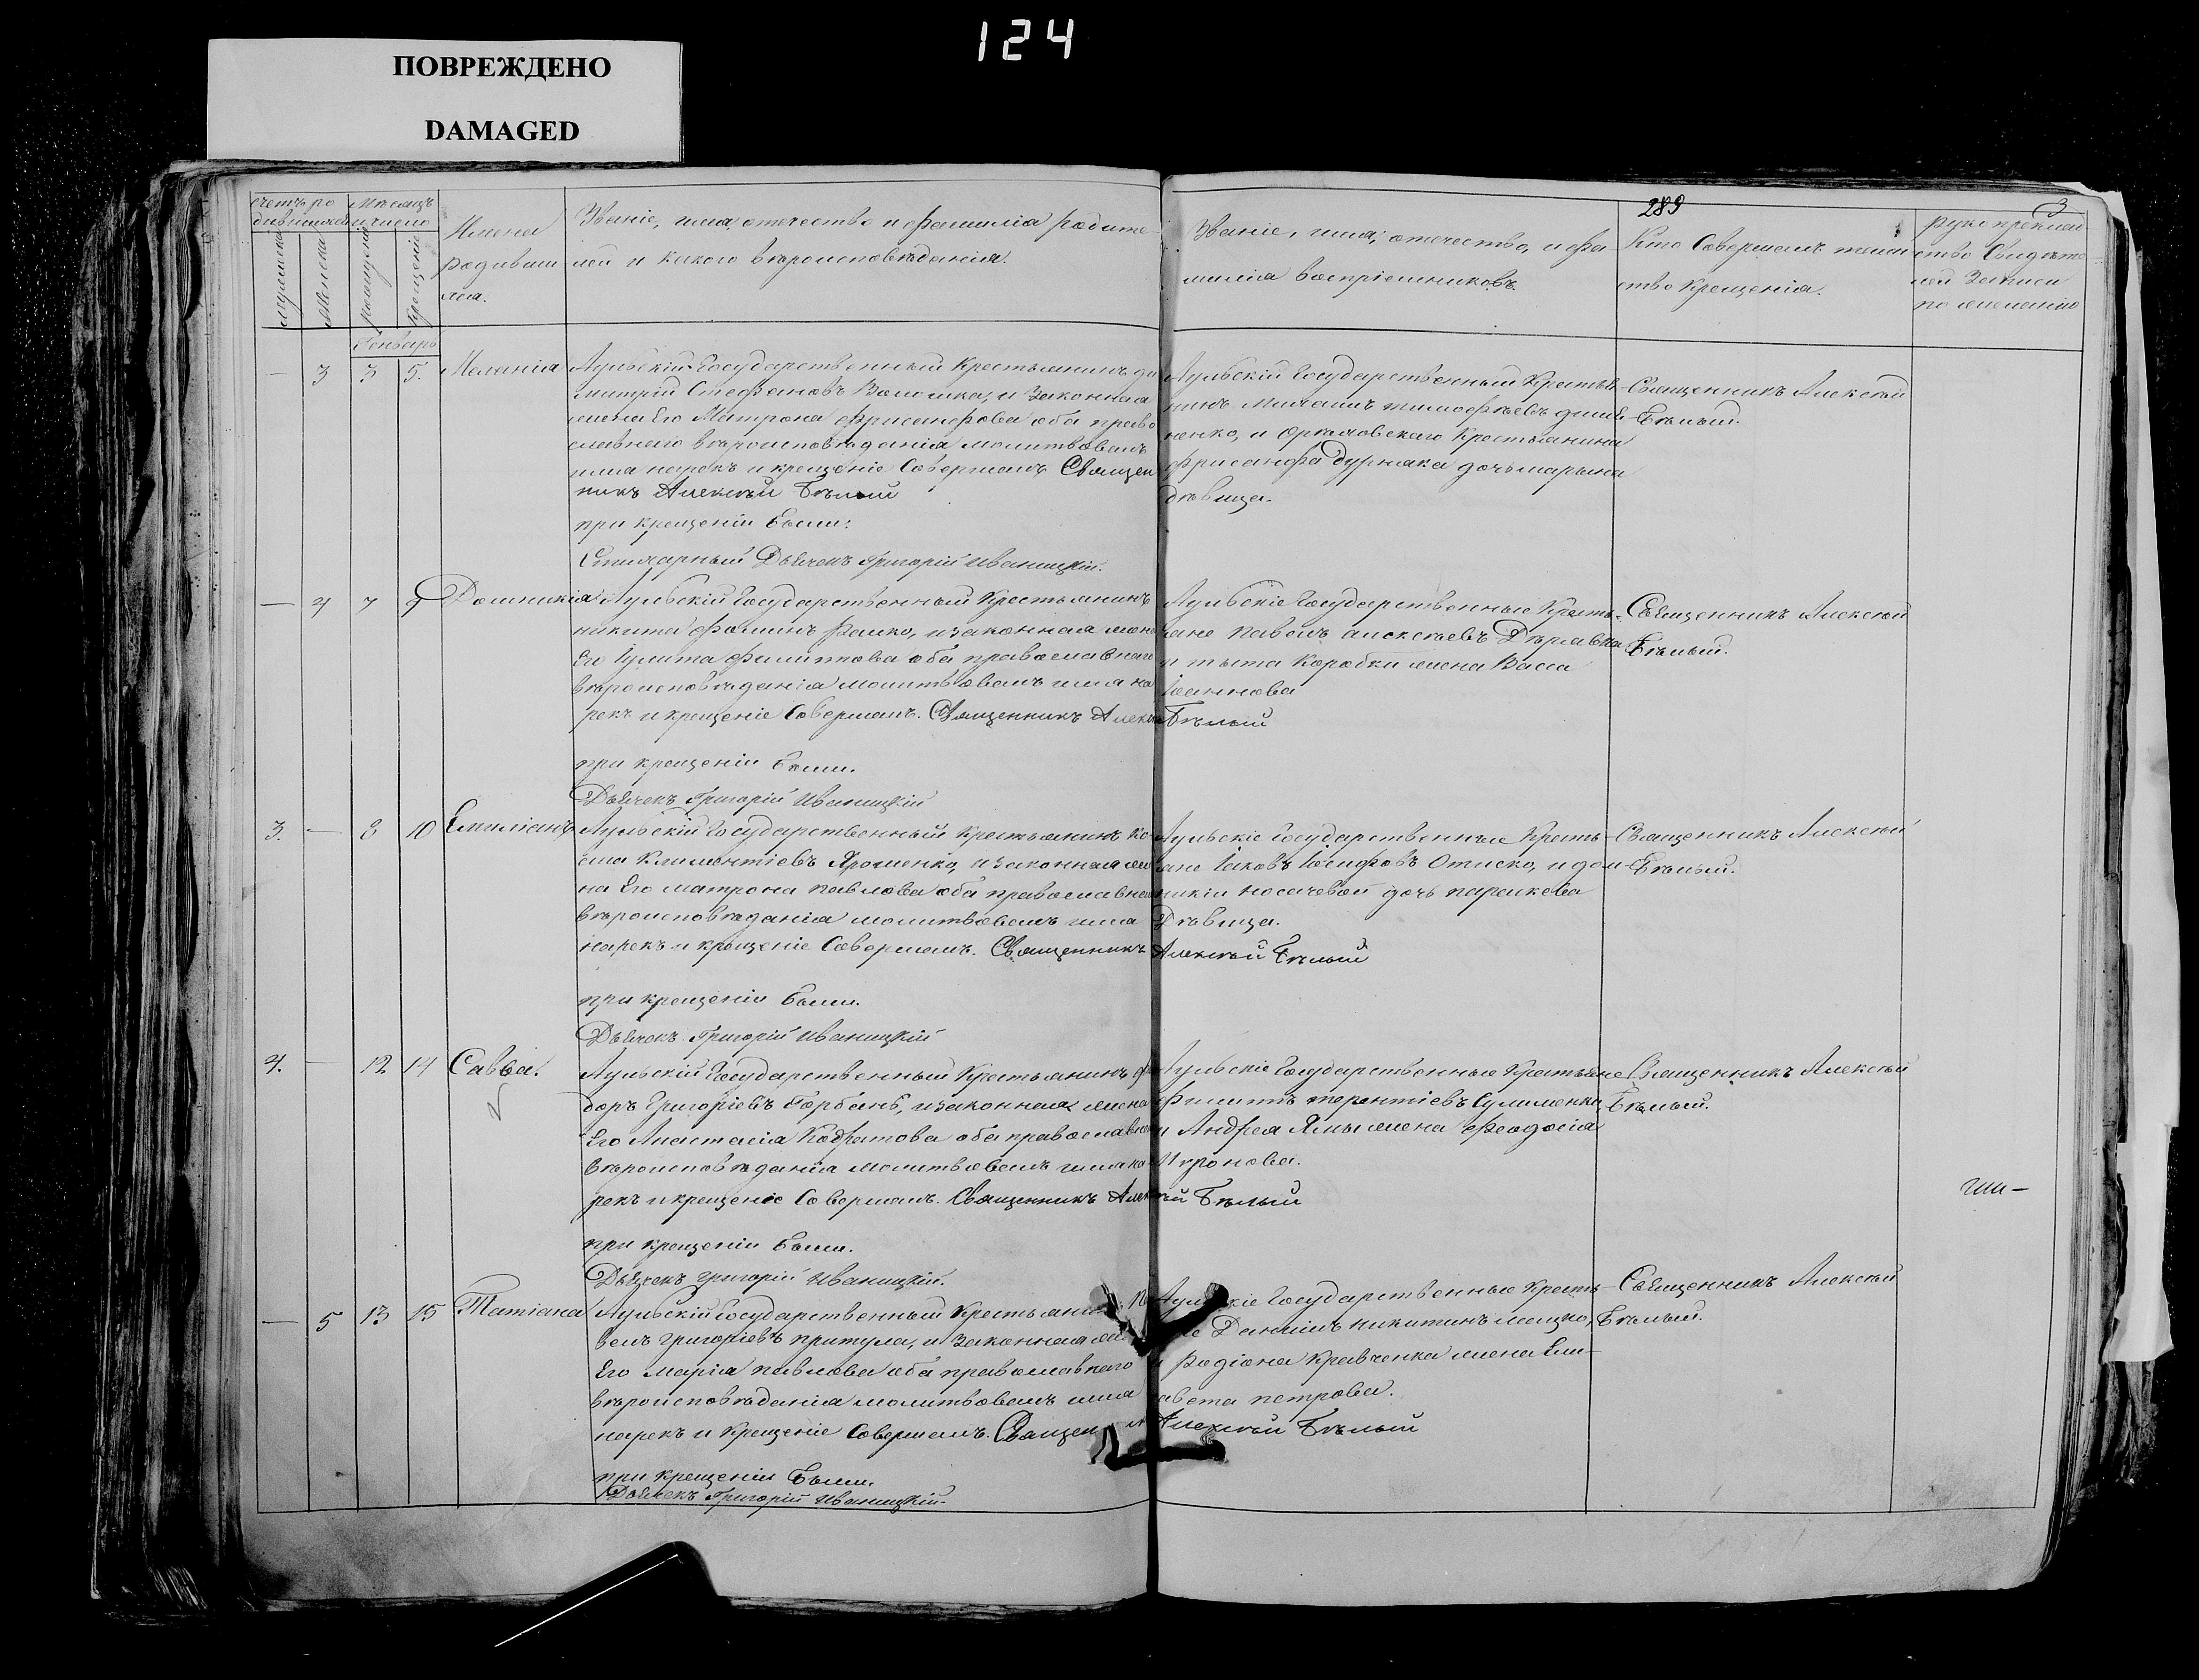 124
ПОВРЕЖДЕНО
DAMAGED
289
3
Счетъ ро
дившихся
Мѣсяцъ
и число
Мужеска
Женска
Рожденія
Крещенія
Имена
родивши
хся.
Званіе, имя, отечество и фамилія родите
лей и какого вѣроисповѣданія.
Званіе, имя, отечество, и фа
милія воспріемниковъ.
Кто Совершалъ таин
ство Крещенія.
Рукоприклад
ство Свидѣте
лей Записи
по желанію
Генварь
— 3 3 5. Меланія
Аульскій Государственный Крестьянинъ Ди
митрій Стефановъ Волошка, и Законная
жена Его Матрона Фрисанфова оба право
славнаго вѣроисповѣданія молитвовалъ
имя нарекъ и крещеніе Совершалъ Священ
никъ Алексѣй Бѣлый
при крещеніи Были:
Стихарный Дьячекъ Григорій Иваницкій.
Аульскій Государственный Крестья
нинъ тимофѣевъ
ненко, и Крестьянина
Фрисанфа Дурняка дочь марьяна
дѣвица.
Священникъ Алексѣй
Бѣлый.
— 4 7 9 Домникія
Аульскій Государственный Крестьянинъ
никита Фоминъ, и законная жена
Его Гулита филиппова оба православнаго
вѣроисповѣданія молитвовалъ имя на
рекъ и крещеніе Совершалъ. Священникъ Алексѣй Бѣлый
при крещеніи Были.
Дьячекъ Григорій Иваницкій
Аульскіе Государственные Крестья
не Павелъ алексѣевъ
и тыта Коробки жена Васса
Іоаннова
Священникъ Алексѣй
Бѣлый.
3. — 8 10 Емиліанъ
Аульскій Государственный Крестьянинъ Ко
сма Климентіевъ Ярошенко, и законная же
на Его матрона павлова оба православнаго
вѣроисповѣданія молитвовалъ имя
нарекъ и крещеніе Совершалъ. Священникъ Алексѣй Бѣлый
при крещеніи Были.
Дьячекъ Григорій Иваницкій
Аульскіе Государственные Кресть
яне Іаковъ Іосифовъ, и дом
никіи носачевой дочь
Дѣвица.
Священникъ Алексѣй
Бѣлый.
4. — 12 14 Савва.
Аульскій Государственный Крестьянинъ Фе
доръ Григоріевъ Горбань, и законная жена
Его Анастасія Кодратова оба православнаго
вѣроисповѣданія молитвовалъ имя на
рекъ и крещеніе Совершалъ. Священникъ Алексѣй Бѣлый
при крещеніи Были.
Дьячекъ Григорій Иваницкій.
Аульскіе Государственные Крестьяне
Филиппъ терентіевъ Сулименко,
и Андрея жена Феодосія
Миронова.
Священникъ Алексѣй
Бѣлый.
— 5 13 15 Татіана
Аульскій Государственный Крестьянинъ Па
велъ григоріевъ притула, и Законная жена
Его марія павлова оба православнаго
вѣроисповѣданія молитвовалъ имя
нарекъ и Крещеніе Совершалъ. Священникъ Алексѣй Бѣлый
при крещеніи Были.
Дьячекъ Григорій Иваницкій.
Аульскіе Государственные Кресть
яне Даніилъ никитинъ,
и Родіона Кравченка жена Ели
савета петрова.
Священникъ Алексѣй
Бѣлый.